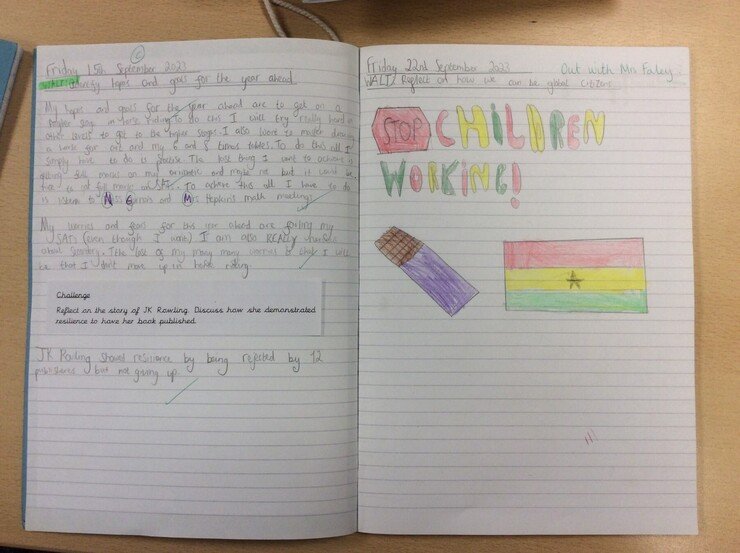 Friday 15th September 2023
WALT: identify hopes and goals for the year ahead.
My hopes and goals for the year ahead are to get on a
higher step in horse riding. To do this I will try really hard on
other levels to get to the higher stages. I also want to master drawing
a horse for art and my 6 and 8 times tables. To do this all I
simply have to do is practise. The last thing I want to achieve is
getting full marks on my arithmetic and maybe not but it would be
nice! to get full marks on SATs. To achieve this all I have to do
is listen to Miss and Mrs Hopkins math meeting!
My worries and fears for this year ahead are failing my
SATs (even though I won't). I am also REALLY nervous
about Secondary. The last of my many many worries is that I will
be that I don't move up in horse riding.
Challenge
Reflect on the story of JK Rowling. Discuss how she demonstrated
resilience to have her book published.
JK Rowling showed resilience by being rejected by 12
publishers but not giving up.
Friday 22nd September 2023
Out with Mrs Faley
WALT: Reflect on how we can be global citizens
STOP CHILDREN
WORKING!